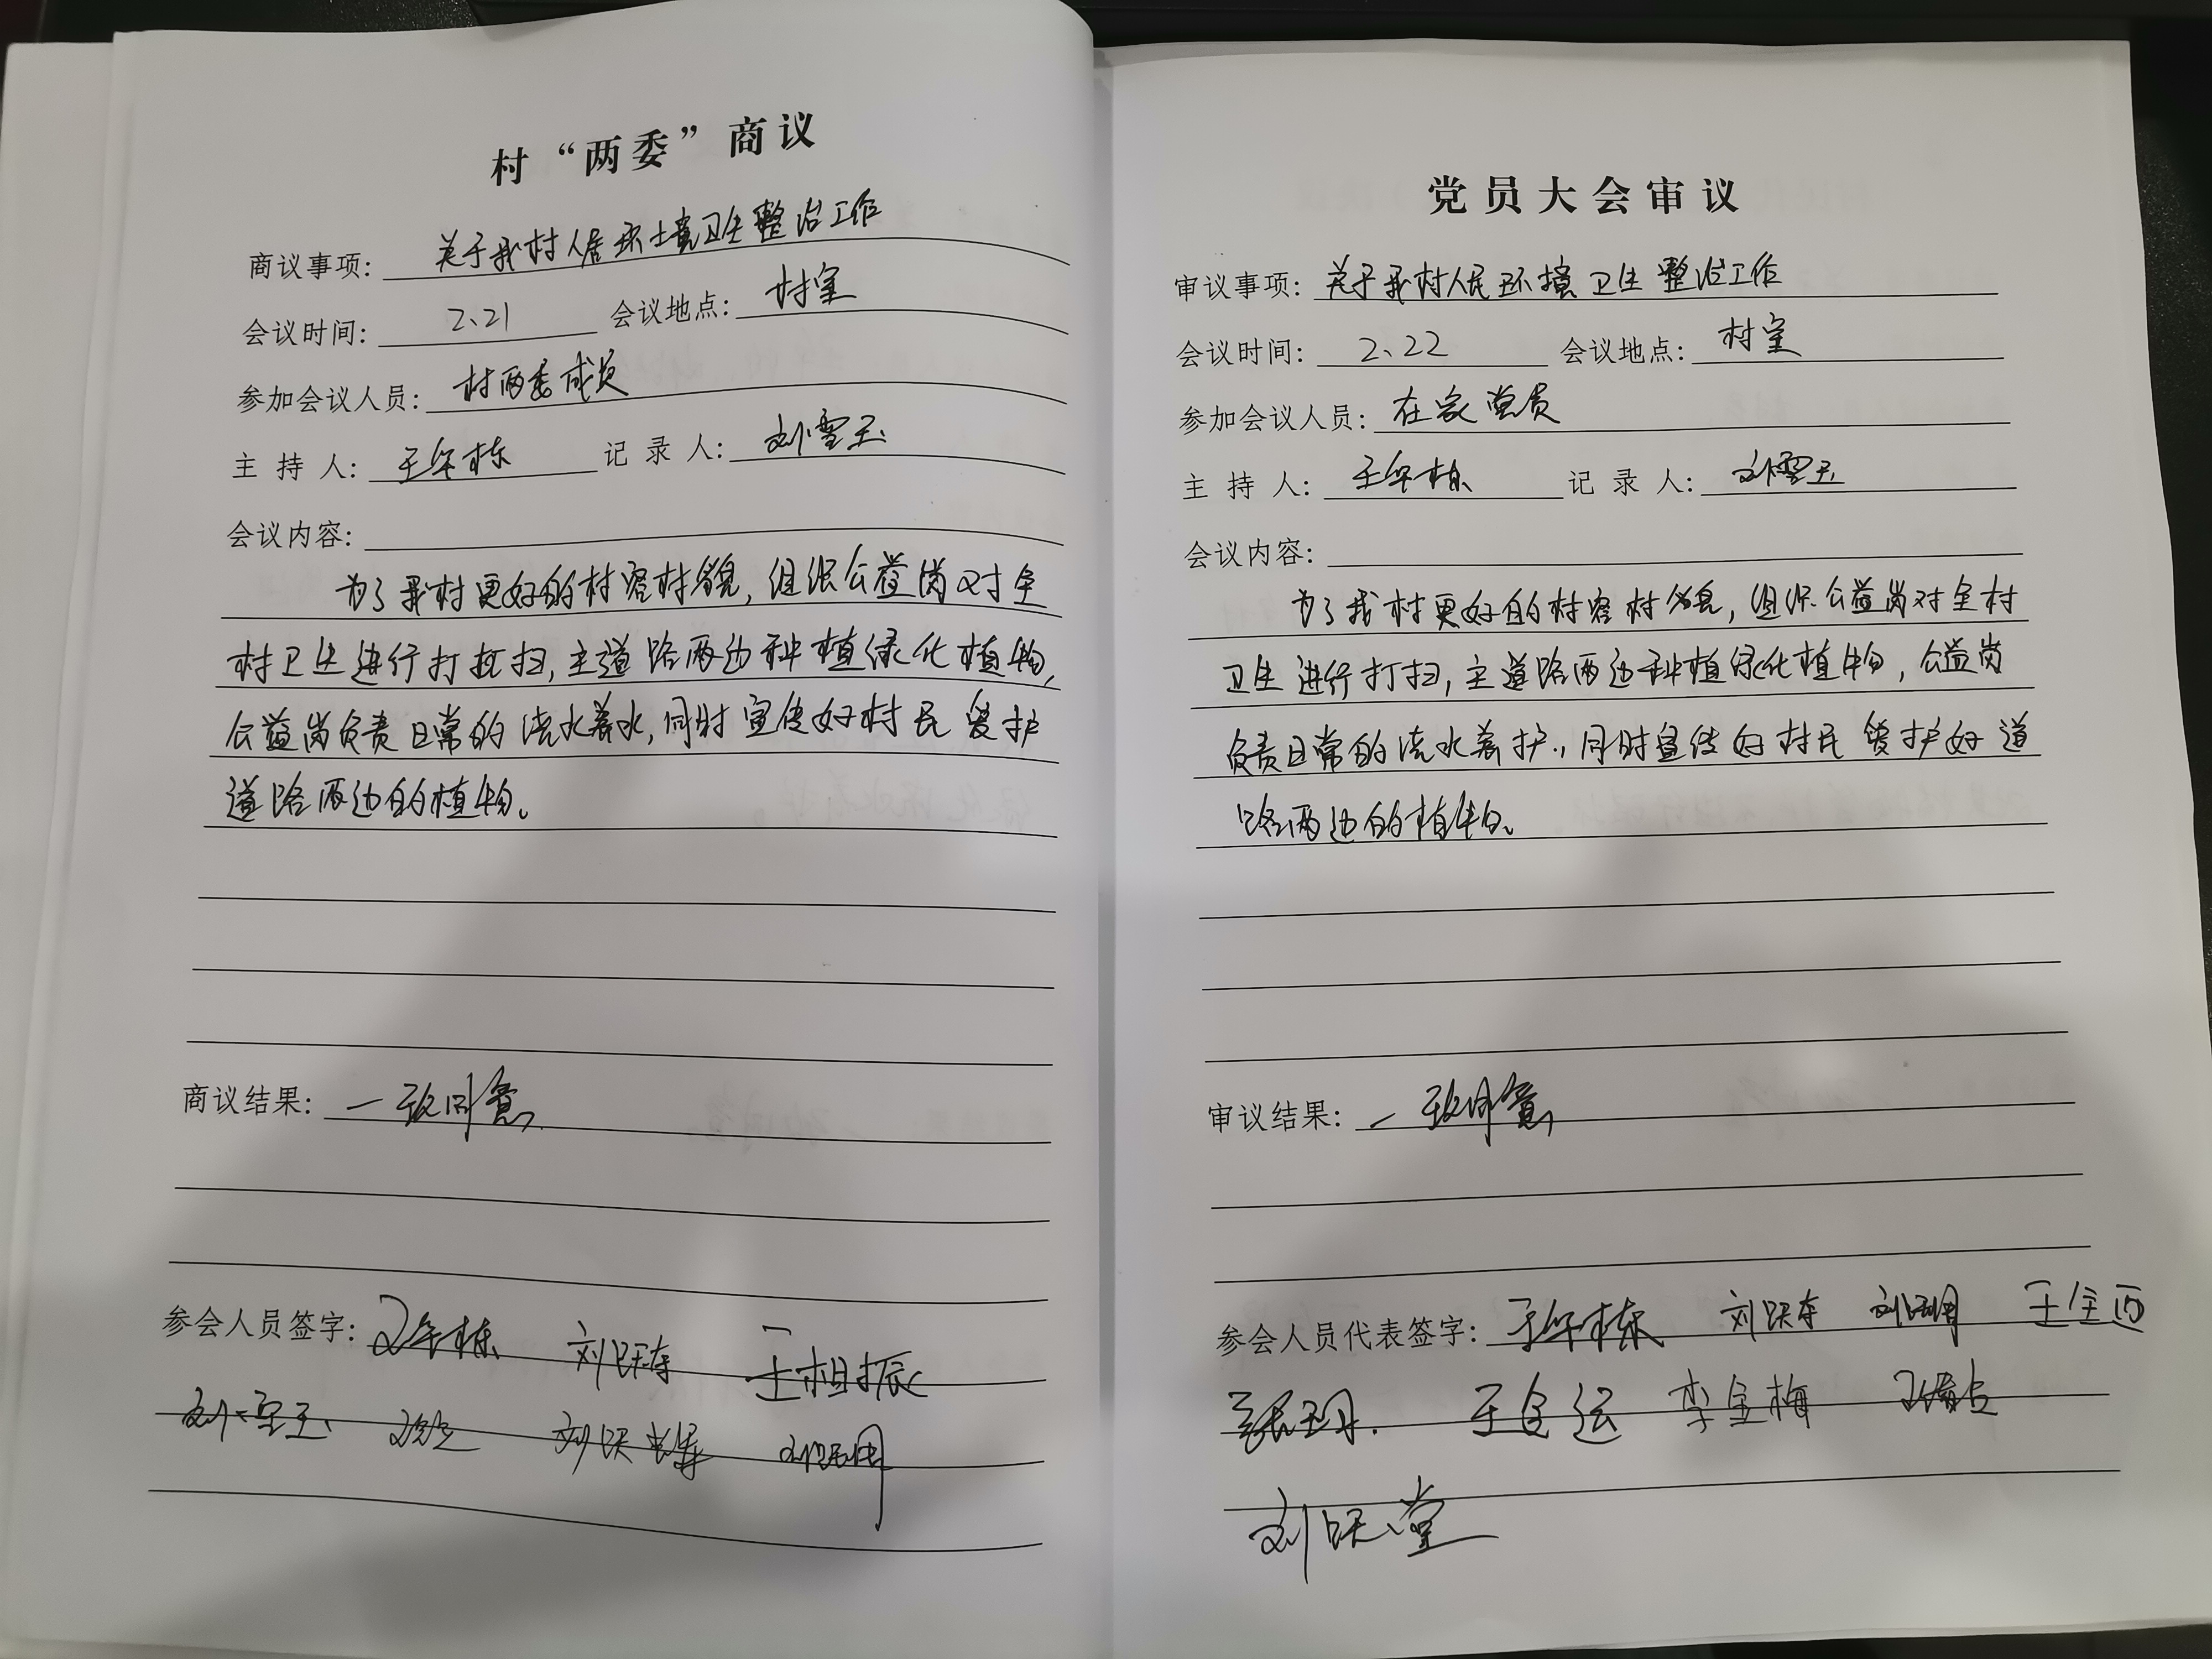 村“两委”商议
商议事项: 关于我村人居环境卫生整治工作
会议时间: 2、21 会议地点: 村室
参加会议人员: 村两委成员
主 持 人: 王年栋 记 录 人: 刘雪玉
会议内容:
为了我村更好的村容村貌，组织公益岗对全
村卫生进行打扫，主道路两边种植绿化植物，
公益岗负责日常的浇水养水，同时宣传好村民爱护
道路两边的植物。
商议结果: 一致同意
参会人员签字: 王年栋 刘跃东 王相振
刘雪玉 刘跃
党员大会审议
审议事项: 关于我村人民环境卫生整治工作
会议时间: 2、22 会议地点: 村室
参加会议人员: 在家党员
主 持 人: 王年栋 记 录 人: 刘雪玉
会议内容:
为了我村更好的村容村貌，组织公益岗对全村
卫生进行打扫，主道路两边种植绿化植物，公益岗
负责日常的浇水养护，同时宣传好村民爱护好道
路两边的植物。
审议结果: 一致同意
参会人员代表签字: 王年栋 刘跃东
李金梅
刘跃堂